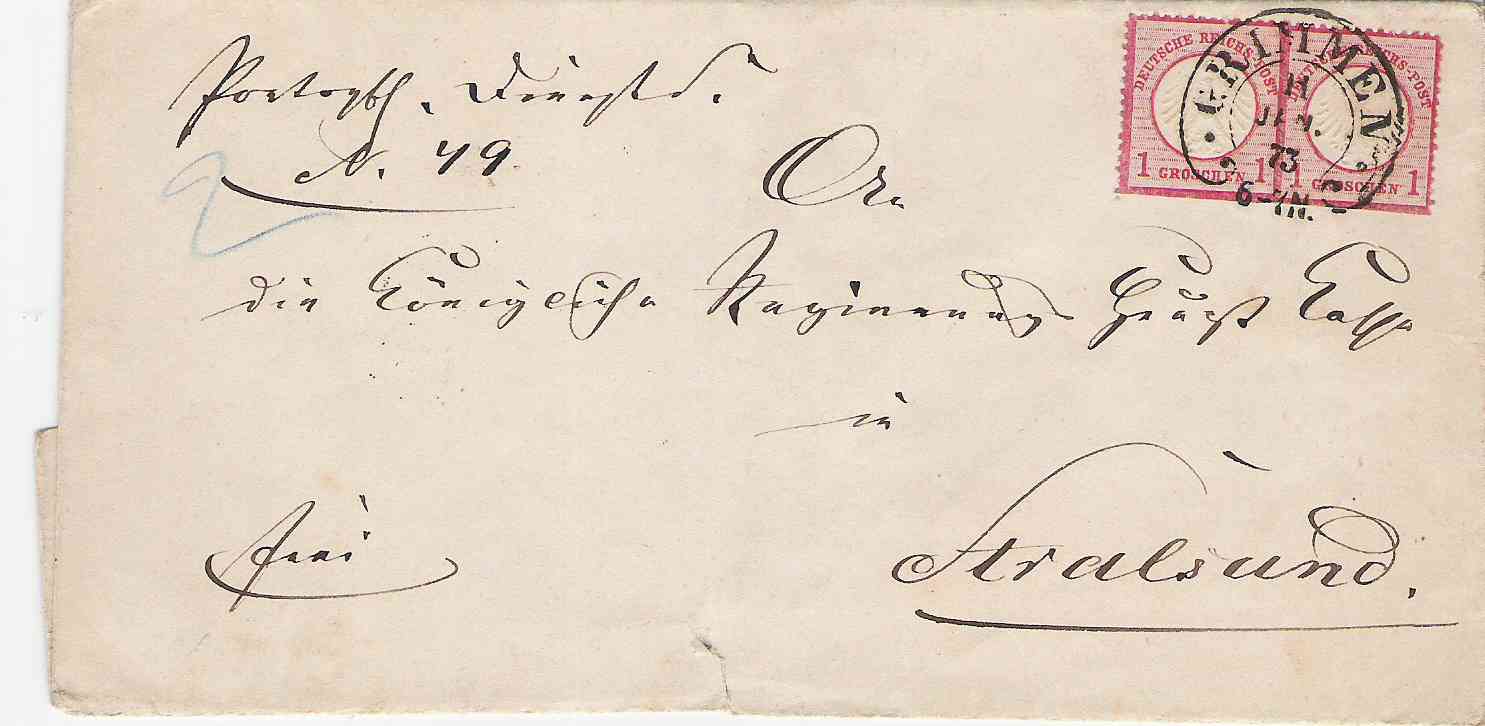 Portopfl. Diensts.
N. 49
An
die Königliche Regierungs Haupt Kasse
in
Stralsund.
frei
2
DEUTSCHE REICHS-POST
1 GROSCHEN 1
REICHS-POST
1 GROSCHEN 1
GRIMMEN
14
JAN.
73
6-7N.